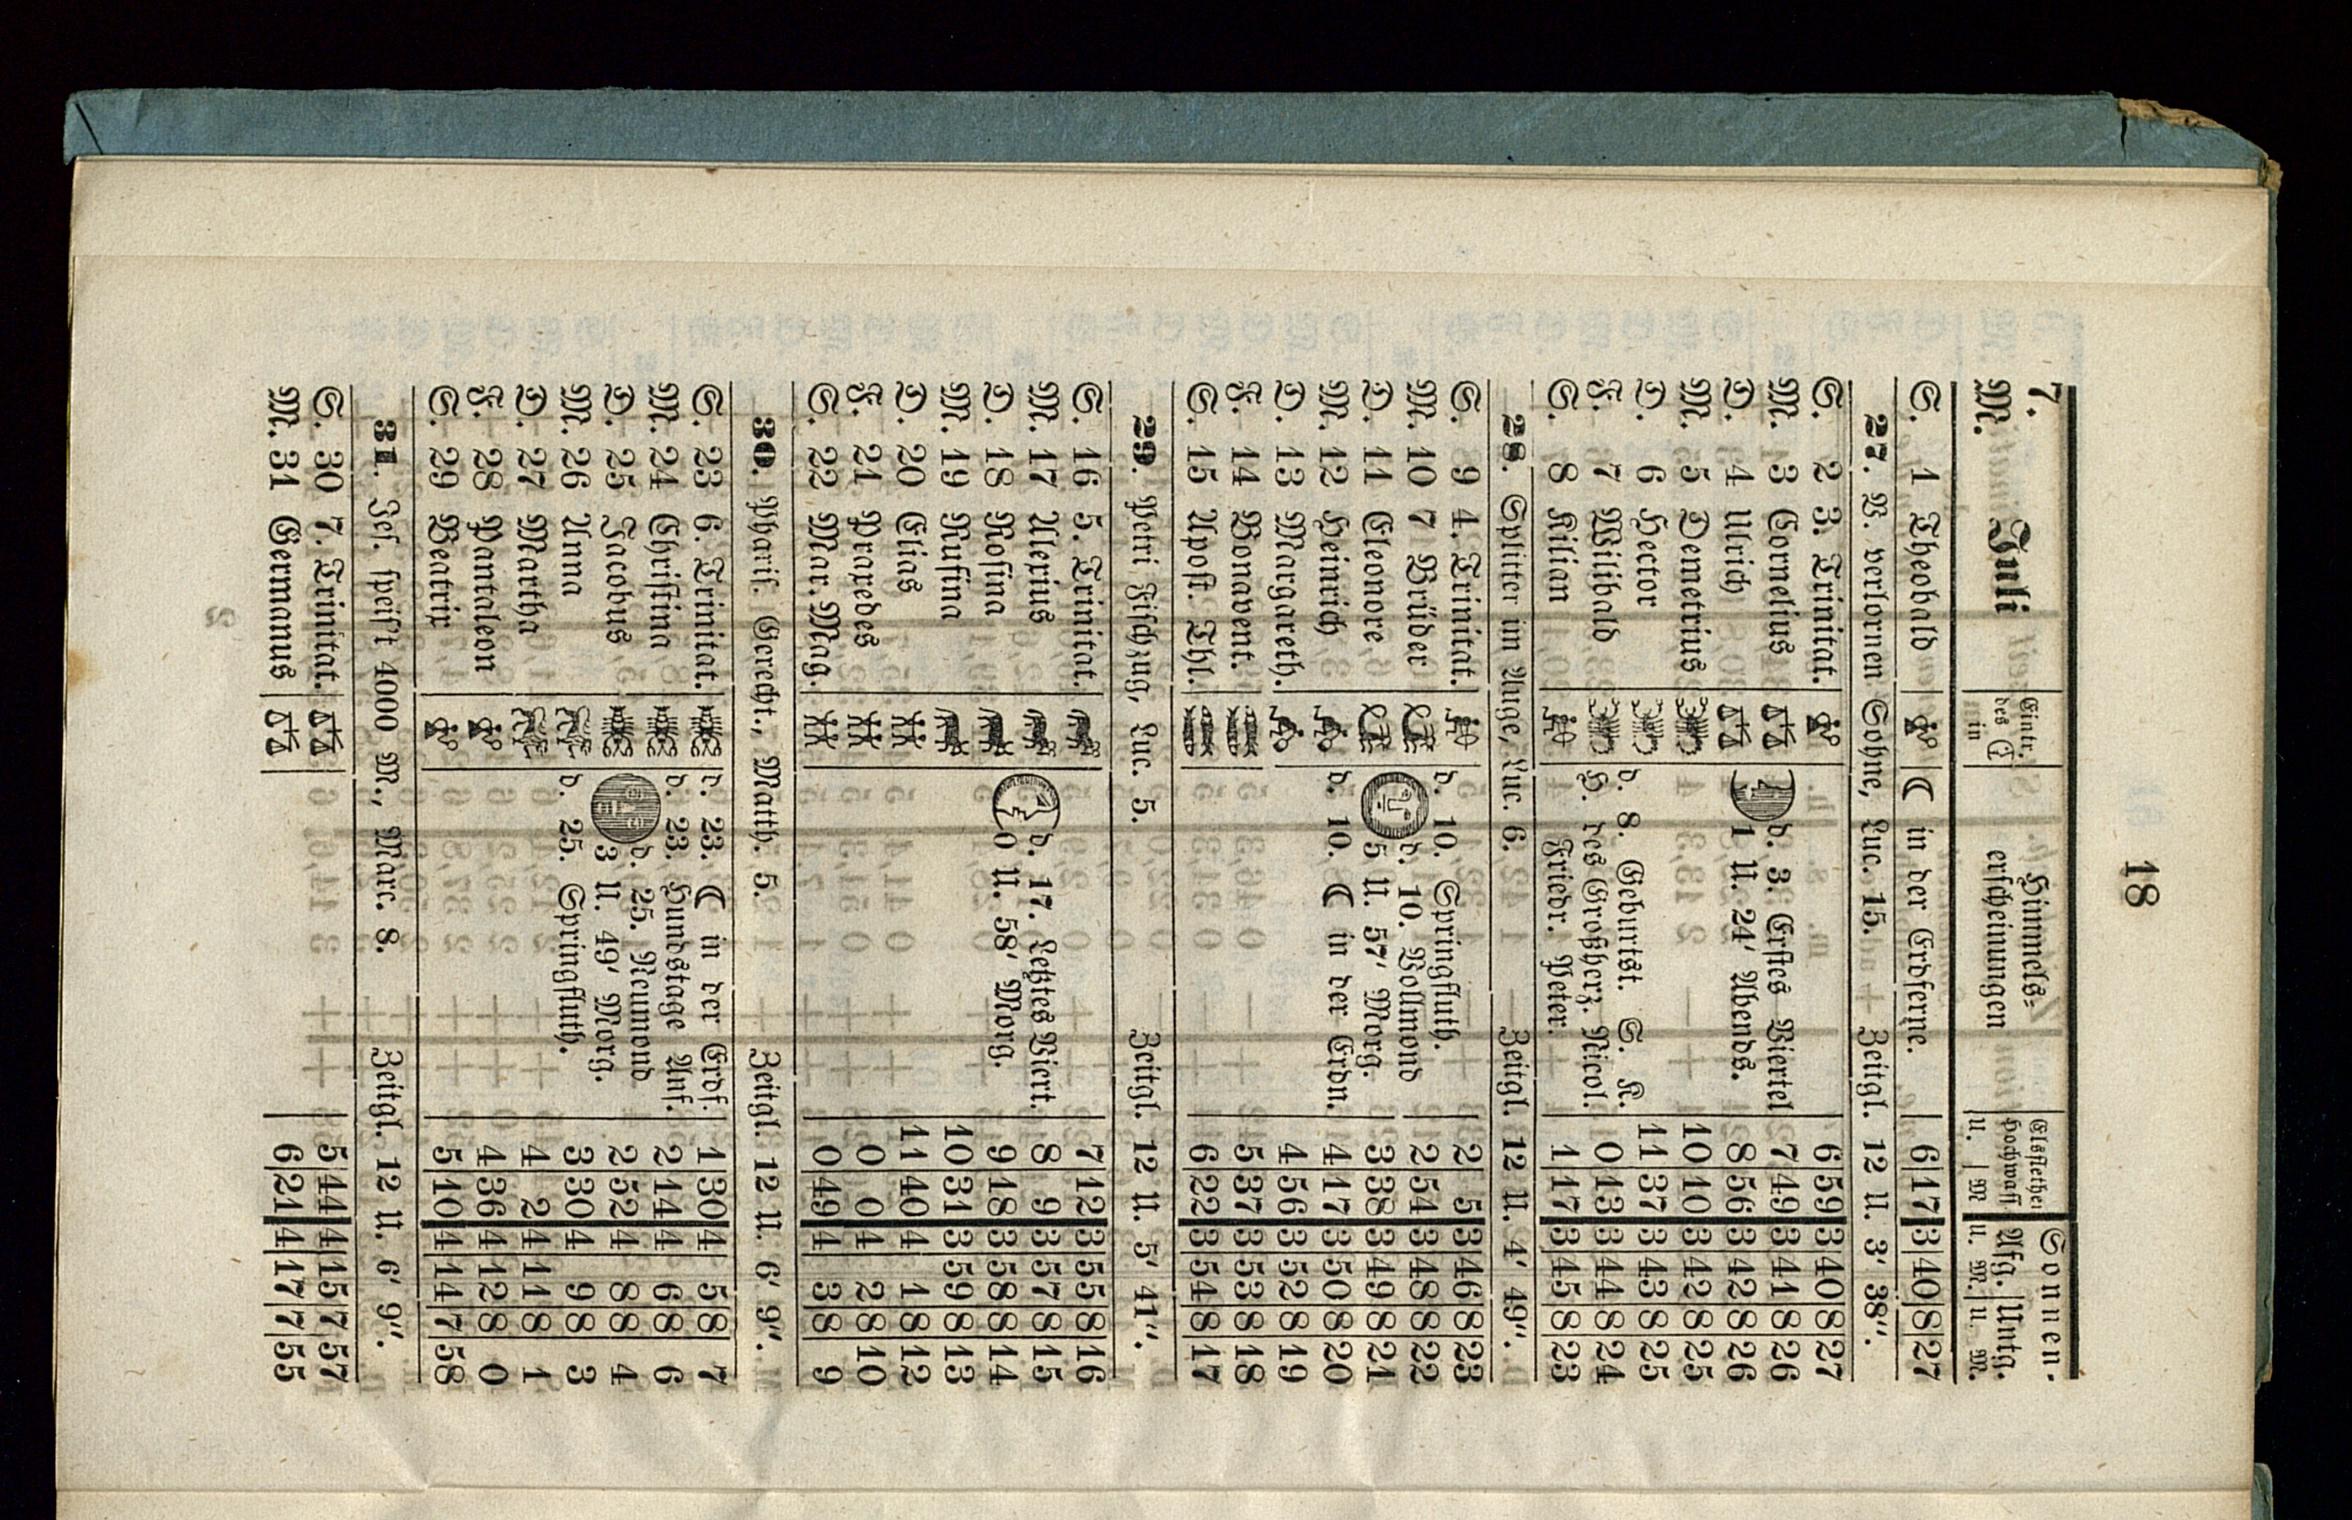 18
7. Juli Eintr. Himmels- Elsflether Sonnen-
M. des ☾ erscheinungen Hochwass. Afg. Untg.
in U. M U. M. U. M.
S. 1 Theobald ☾ in der Erdferne. 6 17 3 40 8 27
27. V. verlornen Sohne, Luc. 15. Zeitgl. 12 U. 3' 38".
S. 2 3. Trinitat. 6 59 3 40 8 27
M. 3 Cornelius d. 3. Erstes Viertel 7 49 3 41 8 26
D. 4 Ulrich 1 U. 24' Abends. 8 56 3 42 8 26
M. 5 Demetrius 10 10 3 42 8 25
D. 6 Hector d. 8. Geburtst. S. K. 11 37 3 43 8 25
F. 7 Wilibald H. des Großherz. Nicol. 0 13 3 44 8 24
S. 8 Kilian Friedr. Peter. 1 17 3 45 8 23
28. Splitter im Auge, Luc. 6. Zeitgl. 12 U. 4' 49".
S. 9 4. Trinitat. d. 10. Springfluth. 2 5 3 46 8 23
M. 10 7 Brüder d. 10. Vollmond 2 54 3 48 8 22
D. 11 Eleonore 5 U. 57' Morg. 3 38 3 49 8 21
M. 12 Heinrich d. 10. ☾ in der Erdn. 4 17 3 50 8 20
D. 13 Margareth. 4 56 3 52 8 19
F. 14 Bonavent. 5 37 3 53 8 18
S. 15 Apost. Thl. 6 22 3 54 8 17
29. Petri Fischzug, Luc. 5. Zeitgl. 12 U. 5' 41".
S. 16 5. Trinitat. 7 12 3 55 8 16
M. 17 Alexius d. 17. Letztes Viert. 8 9 3 57 8 15
D. 18 Rosina 0 U. 58' Morg. 9 18 3 58 8 14
M. 19 Rufina 10 31 3 59 8 13
D. 20 Elias 11 40 4 1 8 12
F. 21 Praxedes 0 0 4 2 8 10
S. 22 Mar. Mag. 0 49 4 3 8 9
30. Pharis. Gerecht., Matth. 5. Zeitgl. 12 U. 6' 9".
S. 23 6. Trinitat. d. 23. ☾ in der Erdf. 1 30 4 5 8 7
M. 24 Christina d. 23. Hundstage Anf. 2 14 4 6 8 6
D. 25 Jacobus d. 25. Neumond 2 52 4 8 8 4
M. 26 Anna 3 U. 49' Morg. 3 30 4 9 8 3
D. 27 Martha d. 25. Springfluth. 4 2 4 11 8 1
F. 28 Pantaleon 4 36 4 12 8 0
S. 29 Beatrix 5 10 4 14 7 58
31. Jes. speist 4000 M., Marc. 8. Zeitgl. 12 U. 6' 9".
S. 30 7. Trinitat. 5 44 4 15 7 57
M. 31 Germanus 6 21 4 17 7 55